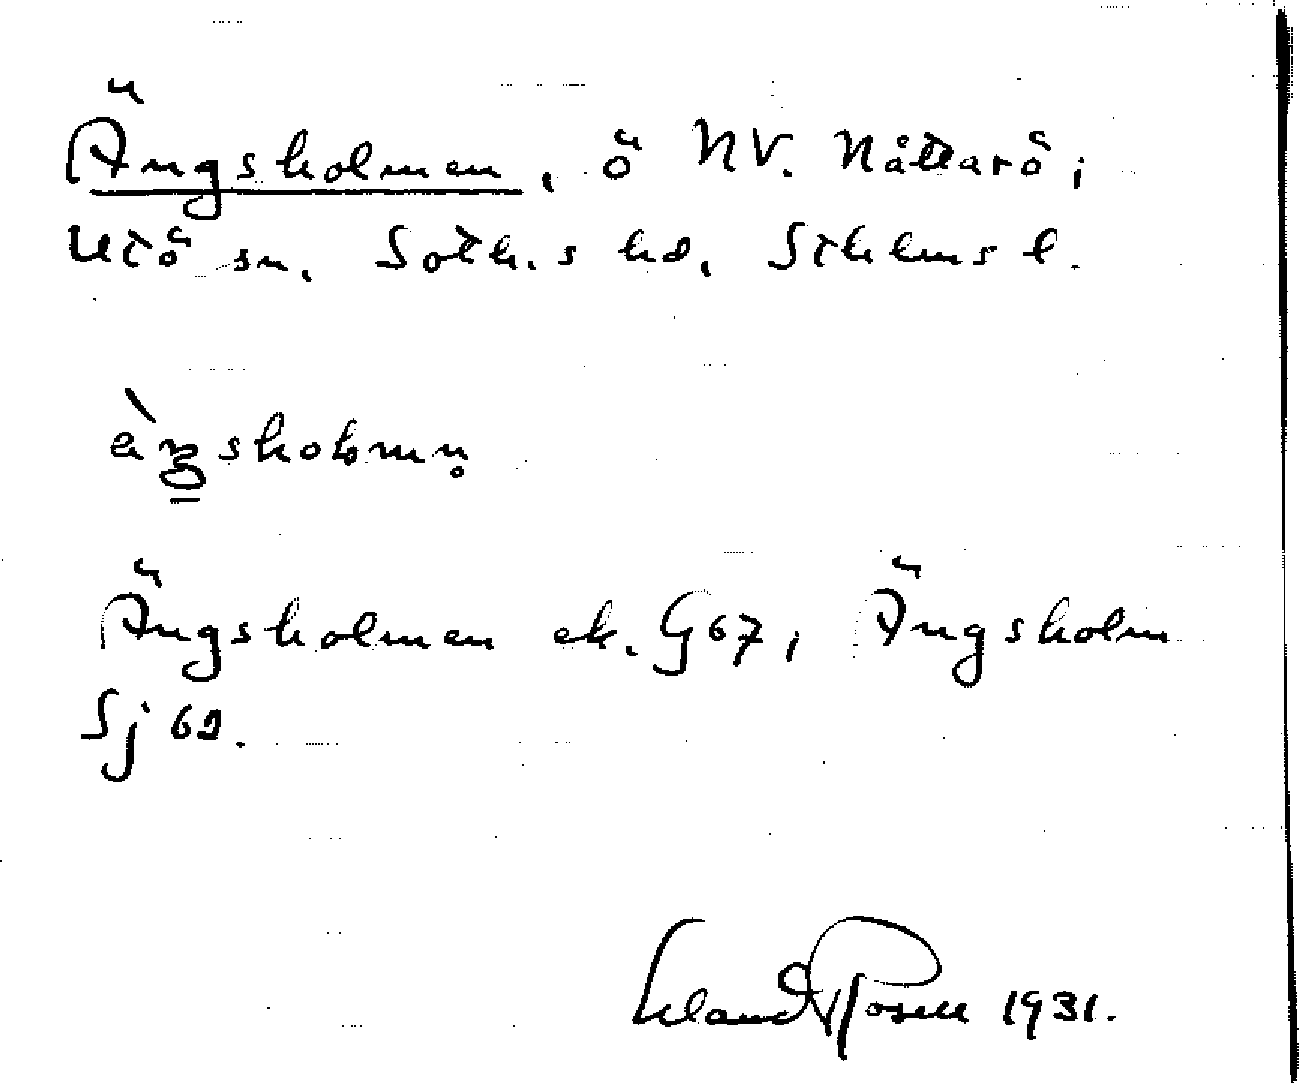 Ängsholmen, ö NV. Nåttarö,
Utö sn. Soth.s hd. Sthlms l.
Ängsholmen ek. G 67, Ängsholm
Sj 69.
Erland Rosell 1931.